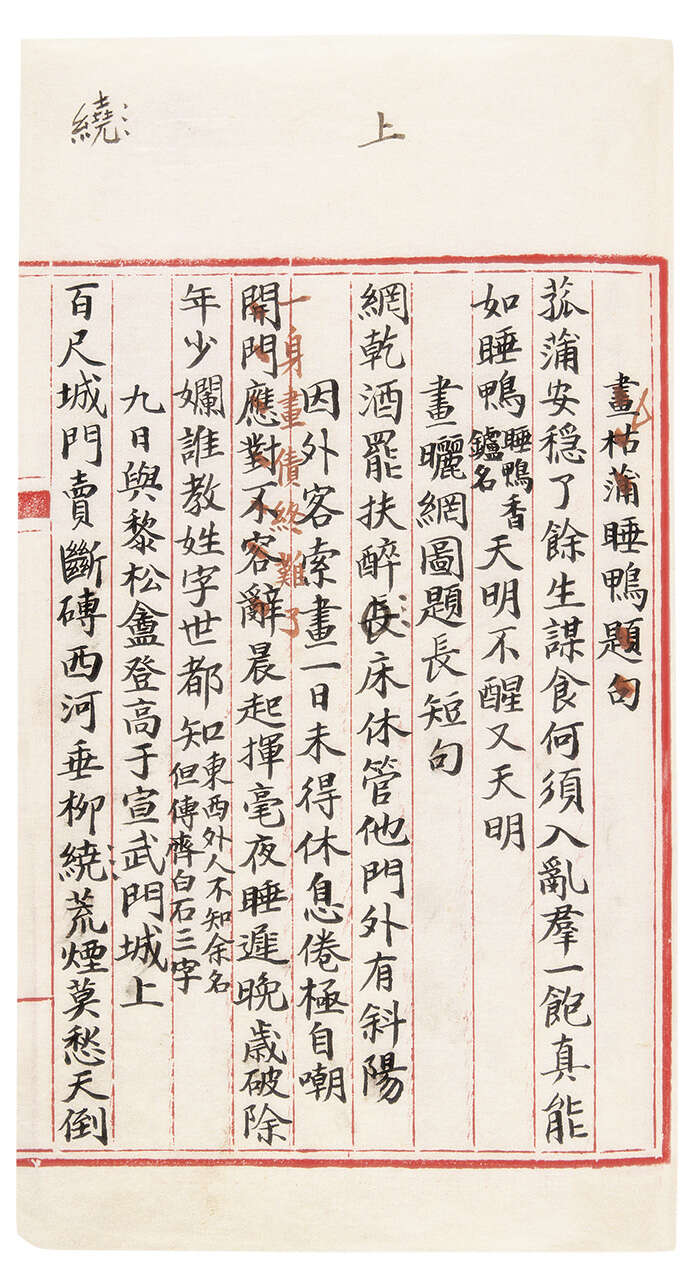 上
繞
畫枯蒲睡鴨題句
菰蒲安穩了餘生謀食何須入亂羣一飽真能
如睡鴨睡鴨香鑪名天明不醒又天明
畫曬網圖題長短句
網乾酒罷扶醉長床休管他門外有斜陽
因外客索畫一日未得休息倦極自嘲
一身畫債終難了
開門應對不容辭晨起揮毫夜睡遲晚歲破除
年少嬾誰教姓字世都知東西外人不知余名但傳齊白石三字
九日與黎松盦登高于宣武門城上
百尺城門賣斷磚西河垂柳繞荒煙莫愁天倒